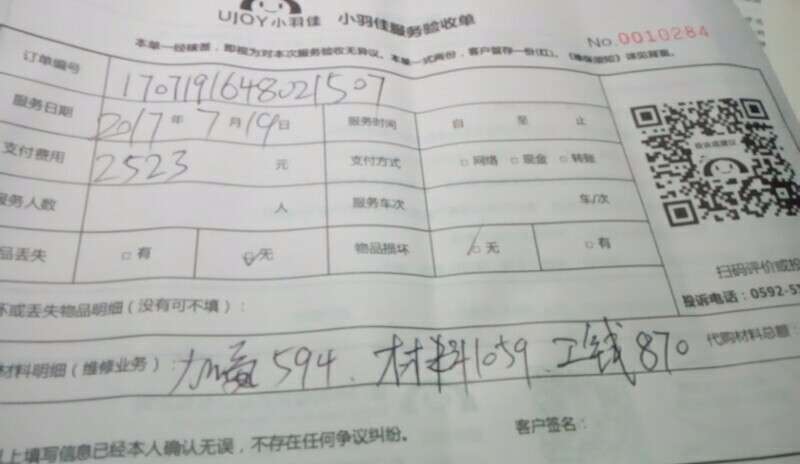 UJOY小羽佳 小羽佳服务验收单
No.0010284
本单一经核签，即视为对本次服务验收无异议。本单一式两份，客户留存一份(红)。《善保须知》详见背面。
订单编号 1707191648021507
服务日期 2017年7月19日 服务时间 自 至 止
支付费用 2523 元 支付方式 □网络 □现金 □转账
服务人数 人 服务车次 车/次
品丢失 □有 □无 物品损坏 □无 □有
扫码评价或投
投诉电话：0592-5
坏或丢失物品明细（没有可不填）：
材料明细（维修业务）：加氟594、材料1059、工钱870 代购材料总额：
上填写信息已经本人确认无误，不存在任何争议纠纷。 客户签名：